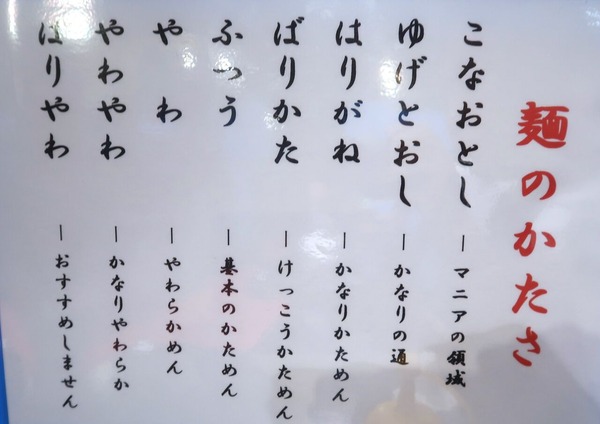 麺のかたさ
こなおとし ー マニアの領域
ゆげとおし ー かなりの通
はりがね ー かなりかためん
ばりかた ー けっこうかためん
ふつう ー 基本のかためん
やわ ー やわらかめん
やわやわ ー かなりやわらか
ばりやわ ー おすすめしません